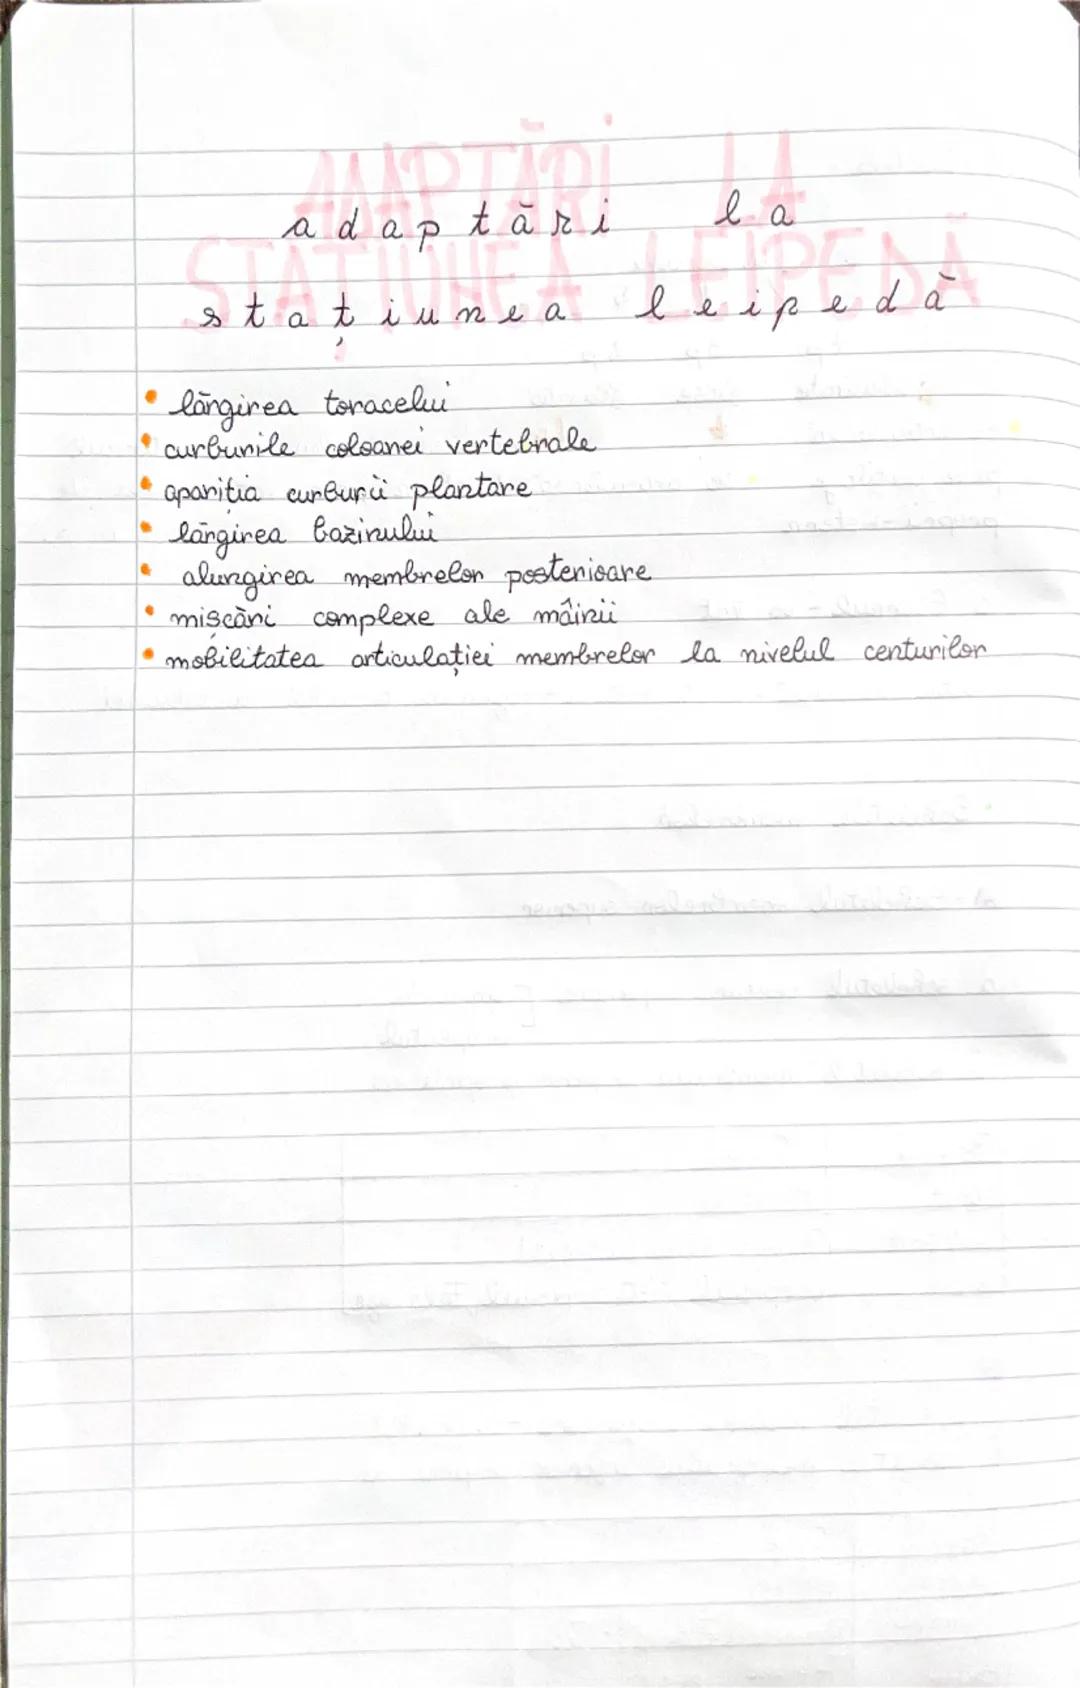 adaptări la
stațiunea leipedă
lărgirea toracelui
curburile coloanei vertebrale
apariția curburii plantare
lărgirea bazinului
alungirea membrelor posterioare
mișcări complexe ale mâinii
mobilitatea articulației membrelor la nivelul centurilor